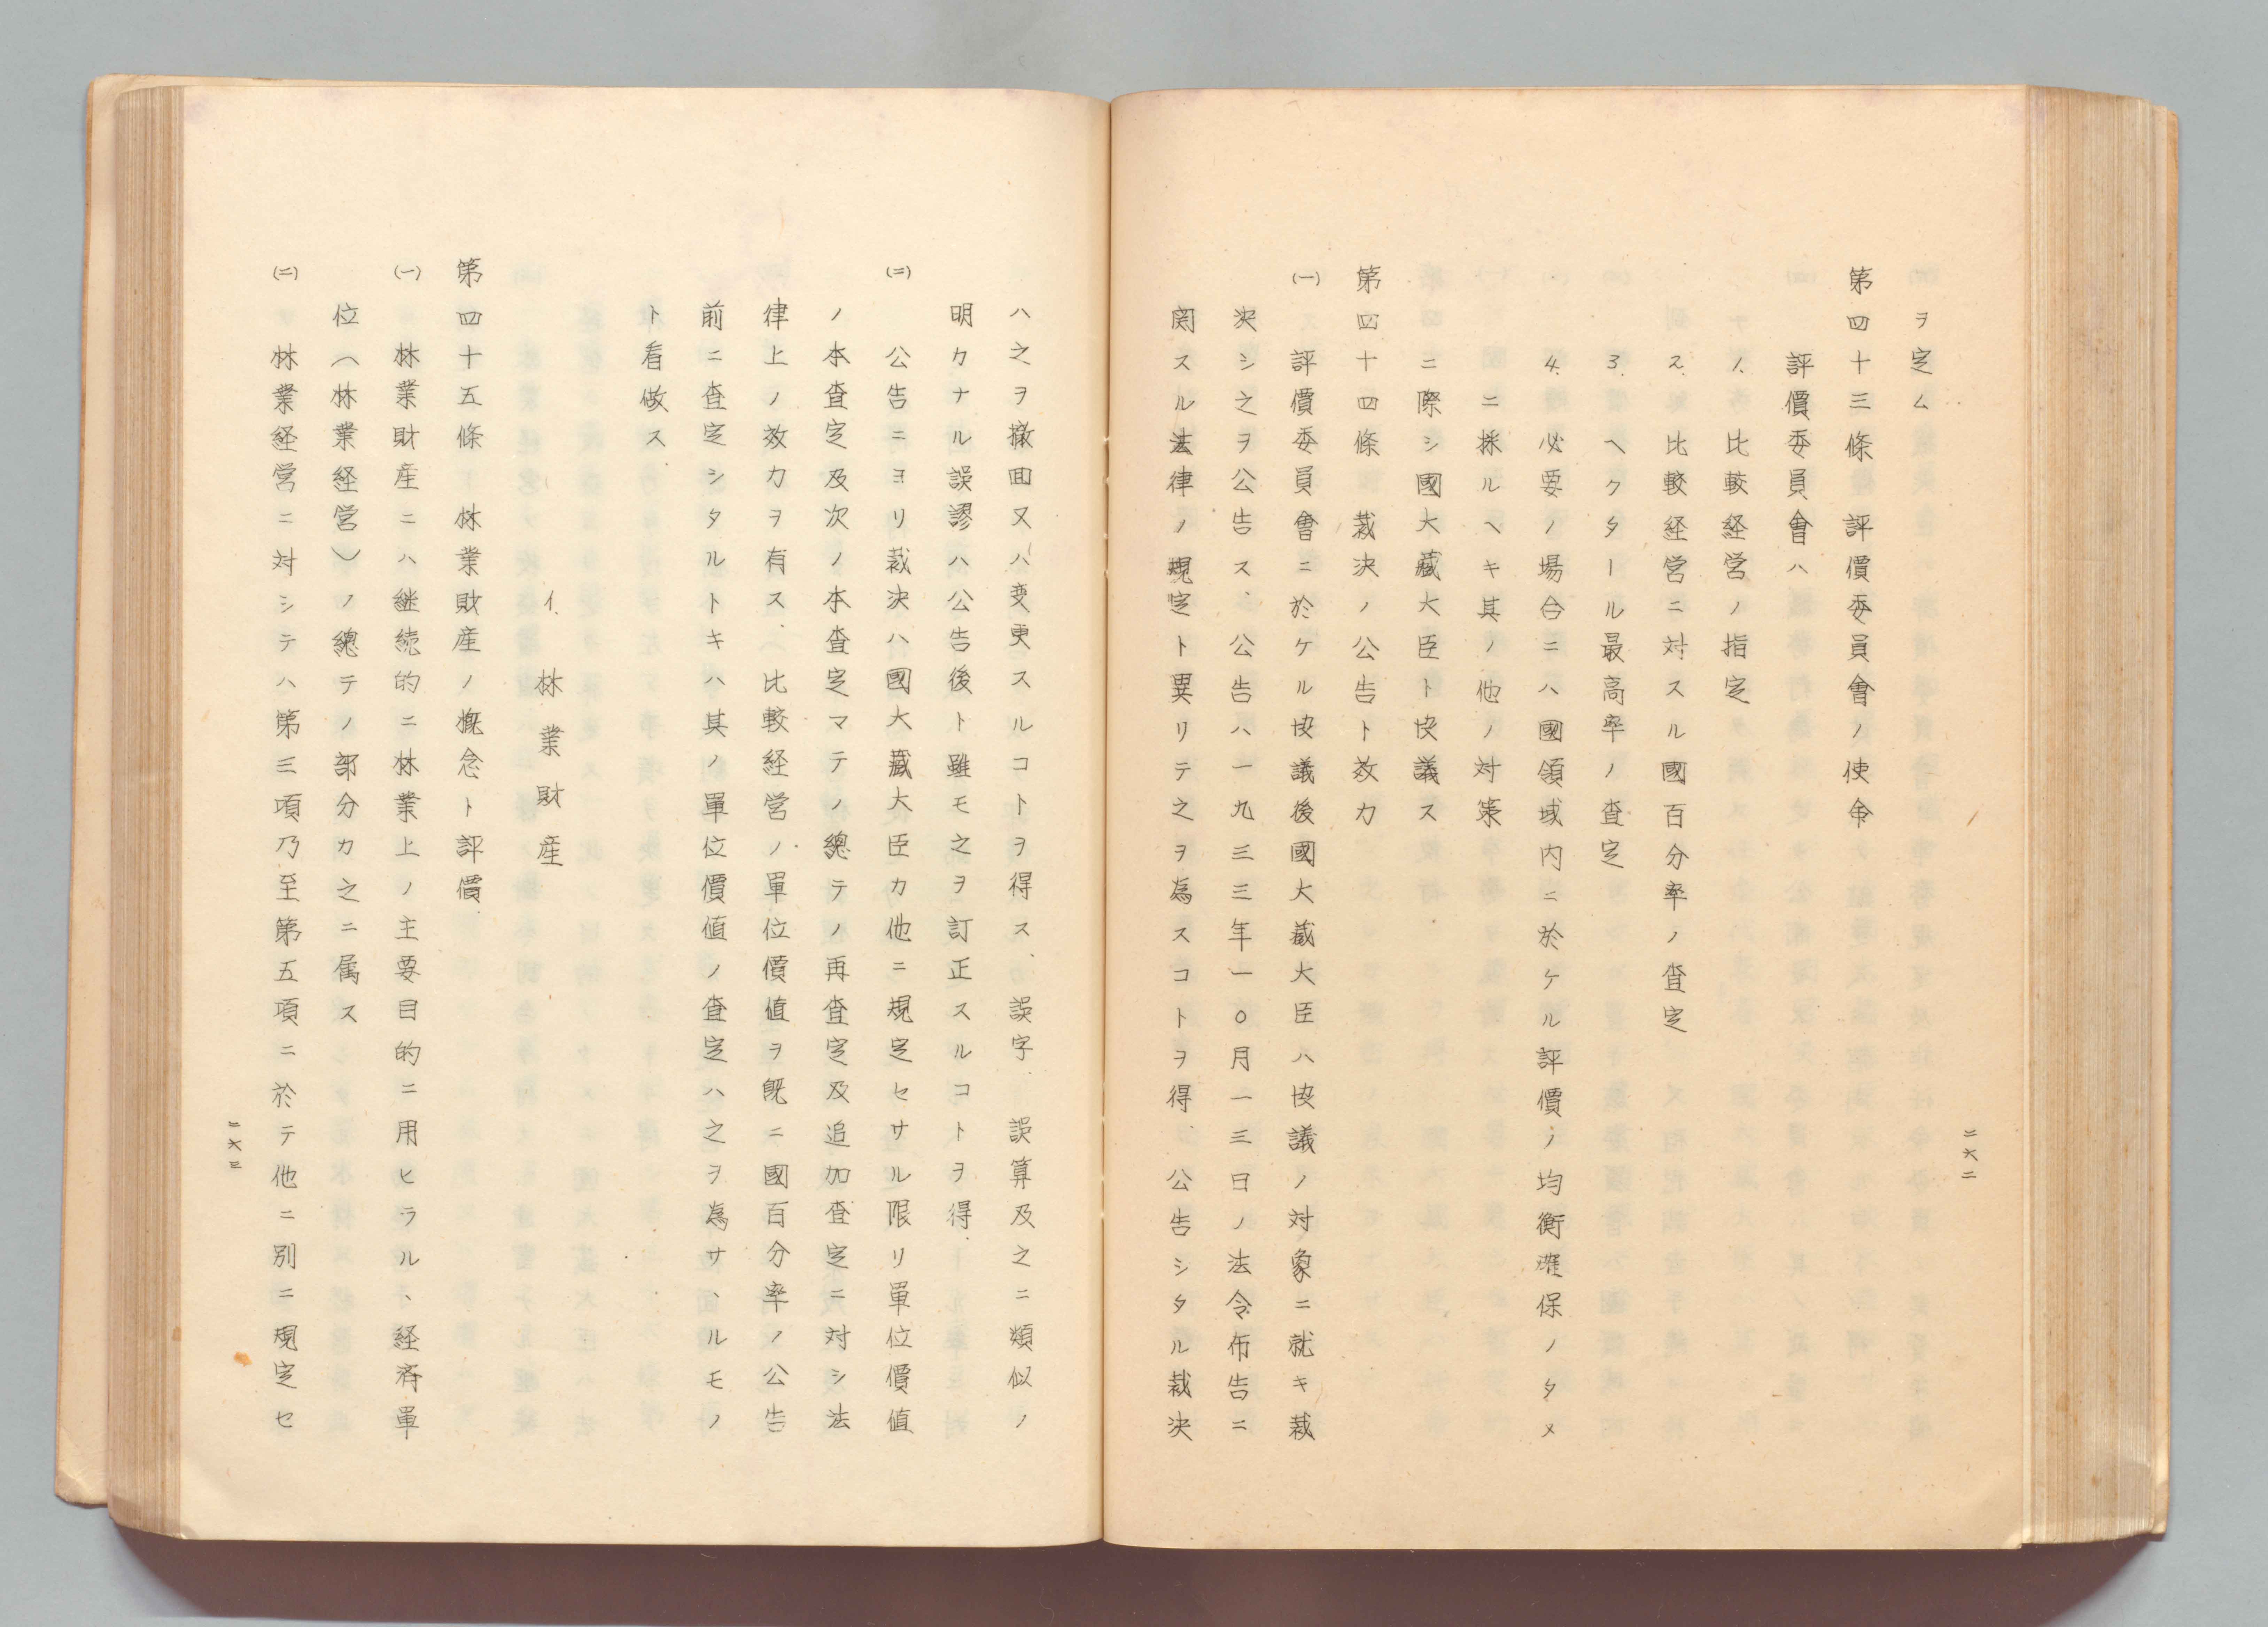 ヲ定ム
第四十三條　評價委員會ノ使命
評價委員會ハ
1. 比較経営ノ指定
2. 比較経営ニ対スル國百分率ノ査定
3. ヘクタール最高率ノ査定
4. 必要ノ場合ニハ國領域内ニ於ケル評價ノ均衡確保ノタメ
ニ採ルヘキ其ノ他ノ対策
ニ際シ國大藏大臣ト协議ス
第四十四條　裁決ノ公告ト效力
(一)　評價委員會ニ於ケル协議後國大藏大臣ハ协議ノ対象ニ就キ裁
決シ之ヲ公告ス、公告ハ一九三三年一〇月一三日ノ法令布告ニ
関スル法律ノ規定ト異リテ之ヲ為スコトヲ得、公告シタル裁決
二六二
ハ之ヲ撤回又ハ変更スルコトヲ得ス、誤字、誤算及之ニ類似ノ
明カナル誤謬ハ公告後ト雖モ之ヲ訂正スルコトヲ得、
(二)　公告ニヨリ裁決ハ國大藏大臣カ他ニ規定セサル限リ單位價値
ノ本査定及次ノ本査定マテノ總テノ再査定及追加査定ニ対シ法
律上ノ效力ヲ有ス、比較経営ノ單位價値ヲ既ニ國百分率ノ公告
前ニ査定シタルトキハ其ノ單位價値ノ査定ハ之ヲ為サヽルモノ
ト看做ス
イ.　林業財産
第四十五條　林業財産ノ概念ト評價
(一)　林業財産ニハ継続的ニ林業上ノ主要目的ニ用ヒラルヽ経済單
位（林業経営）ノ總テノ部分カ之ニ属ス
(二)　林業経営ニ対シテハ第三項乃至第五項ニ於テ他ニ別ニ規定セ
二六三